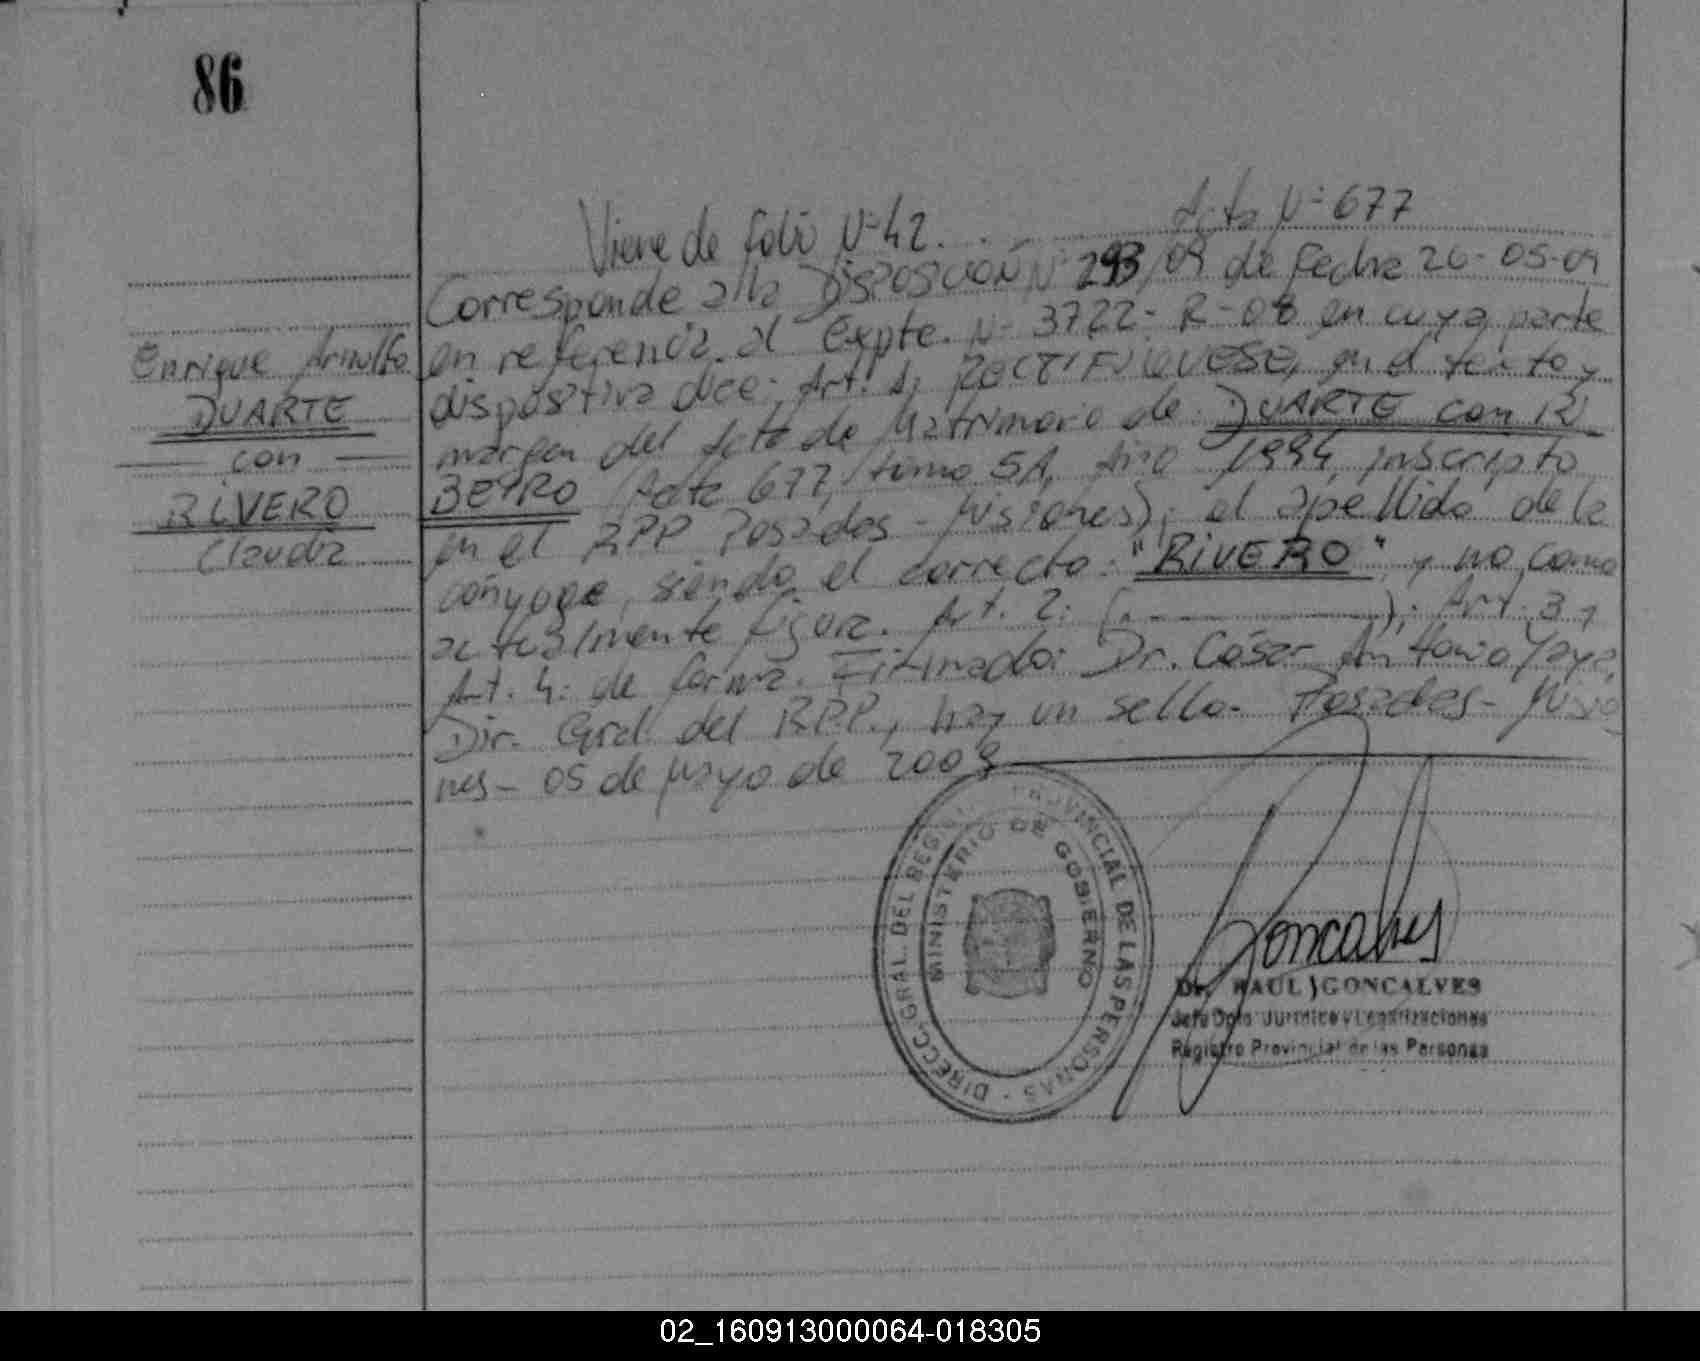 86
Viene de folio Nº 42. Acta Nº 677
Corresponde a la DISPOSICION Nº 293/09 de fecha 26-05-09
en referencia al Expte. Nº 3722-R-08 en cuya parte
dispositiva dice: Art. 1: RECTIFIQUESE, en el texto y
margen del Acta de Matrimonio de DUARTE con RI
BEYRO (Acta 677, tomo 5A, Año 1994, inscripto
en el RPP Posadas - Misiones); el apellido de la
cónyuge, siendo el correcto: "RIVERO" y no como
actualmente figura. Art. 2: (. ); Art. 3 y
Art. 4: de forma. Firmado: Dr. César Antonio Yaya,
Dir. Gral. del RPP., hay un sello. Posadas - Misio
nes - 05 de Mayo de 2009
Enrique Arnulfo
DUARTE
con
RIVERO
Claudia
DIRECC. GRAL. DEL REG. PROVINCIAL DE LAS PERSONAS
MINISTERIO DE GOBIERNO
Goncalves
Dr. RAUL GONCALVES
Jefe Dpto Jurídico y Legalizaciones
Registro Provincial de las Personas
02_160913000064-018305